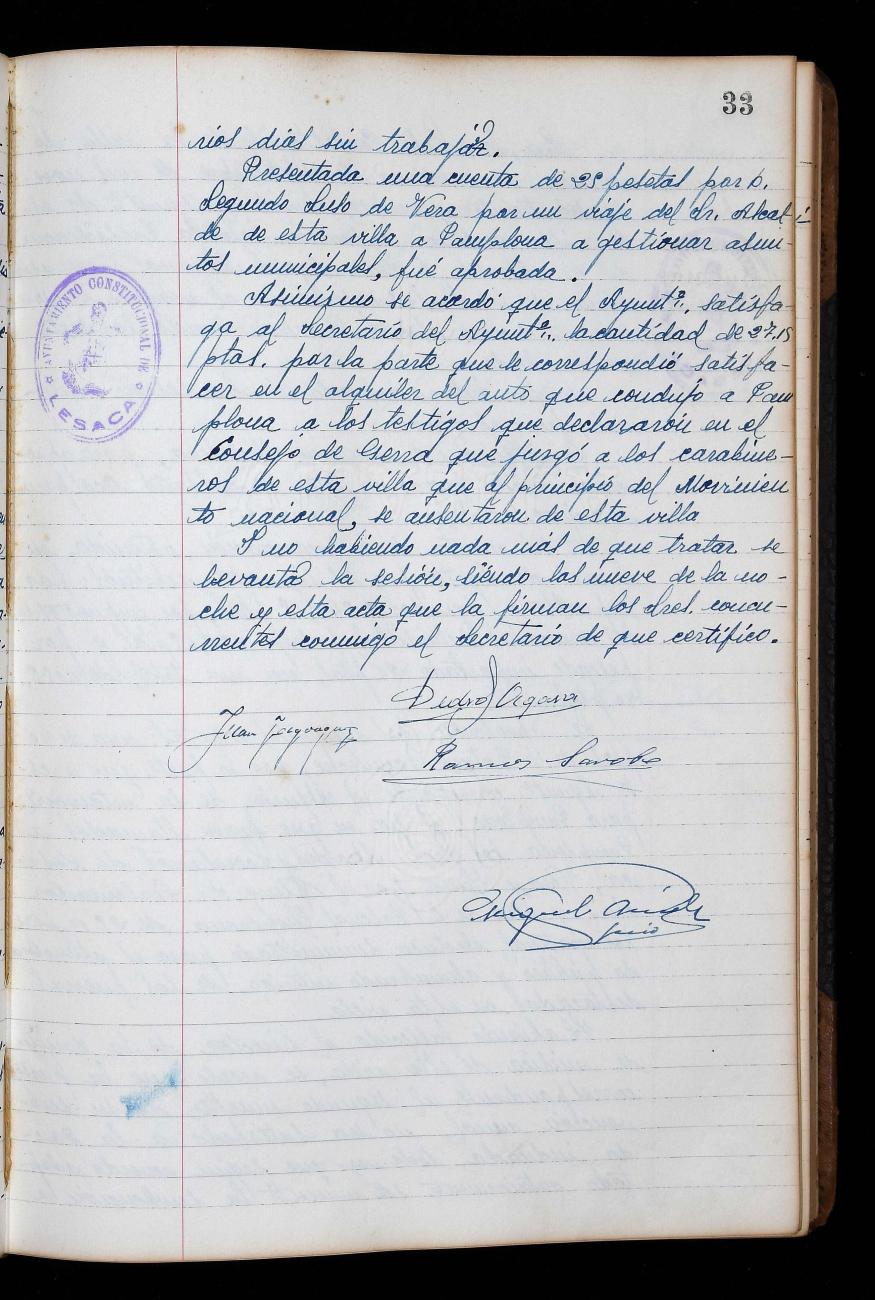 33
rios dias sin trabajar.
Presentada una cuenta de 25 pesetas por D.
Segundo Luso de Vera por un viaje del Sr. Alcal-
de de esta villa a Pamplona a gestionar asun-
tos municipales, fué aprobada.
Asimismo se acordó que el Ayuntº. satisfa-
ga al Secretario del Ayuntº. la cantidad de 27,15
ptas. por la parte que le correspondió satisfa-
cer en el alquiler del auto que condujo a Pam
plona a los testigos que declararón en el
Consejo de Gerra que juzgó a los carabine-
ros de esta villa que al principio del Movimien
to nacional, se ausentaron de esta villa
I no habiendo nada más de que tratar se
levantó la sesión, siendo las nueve de la no-
che y esta acta que la firman los Sres. concu-
rrentes conmigo el Secretario de que certifico.
AYUNTAMIENTO CONSTITUCIONAL DE
LESACA
Pedro
Juan
Ramon
Miguel